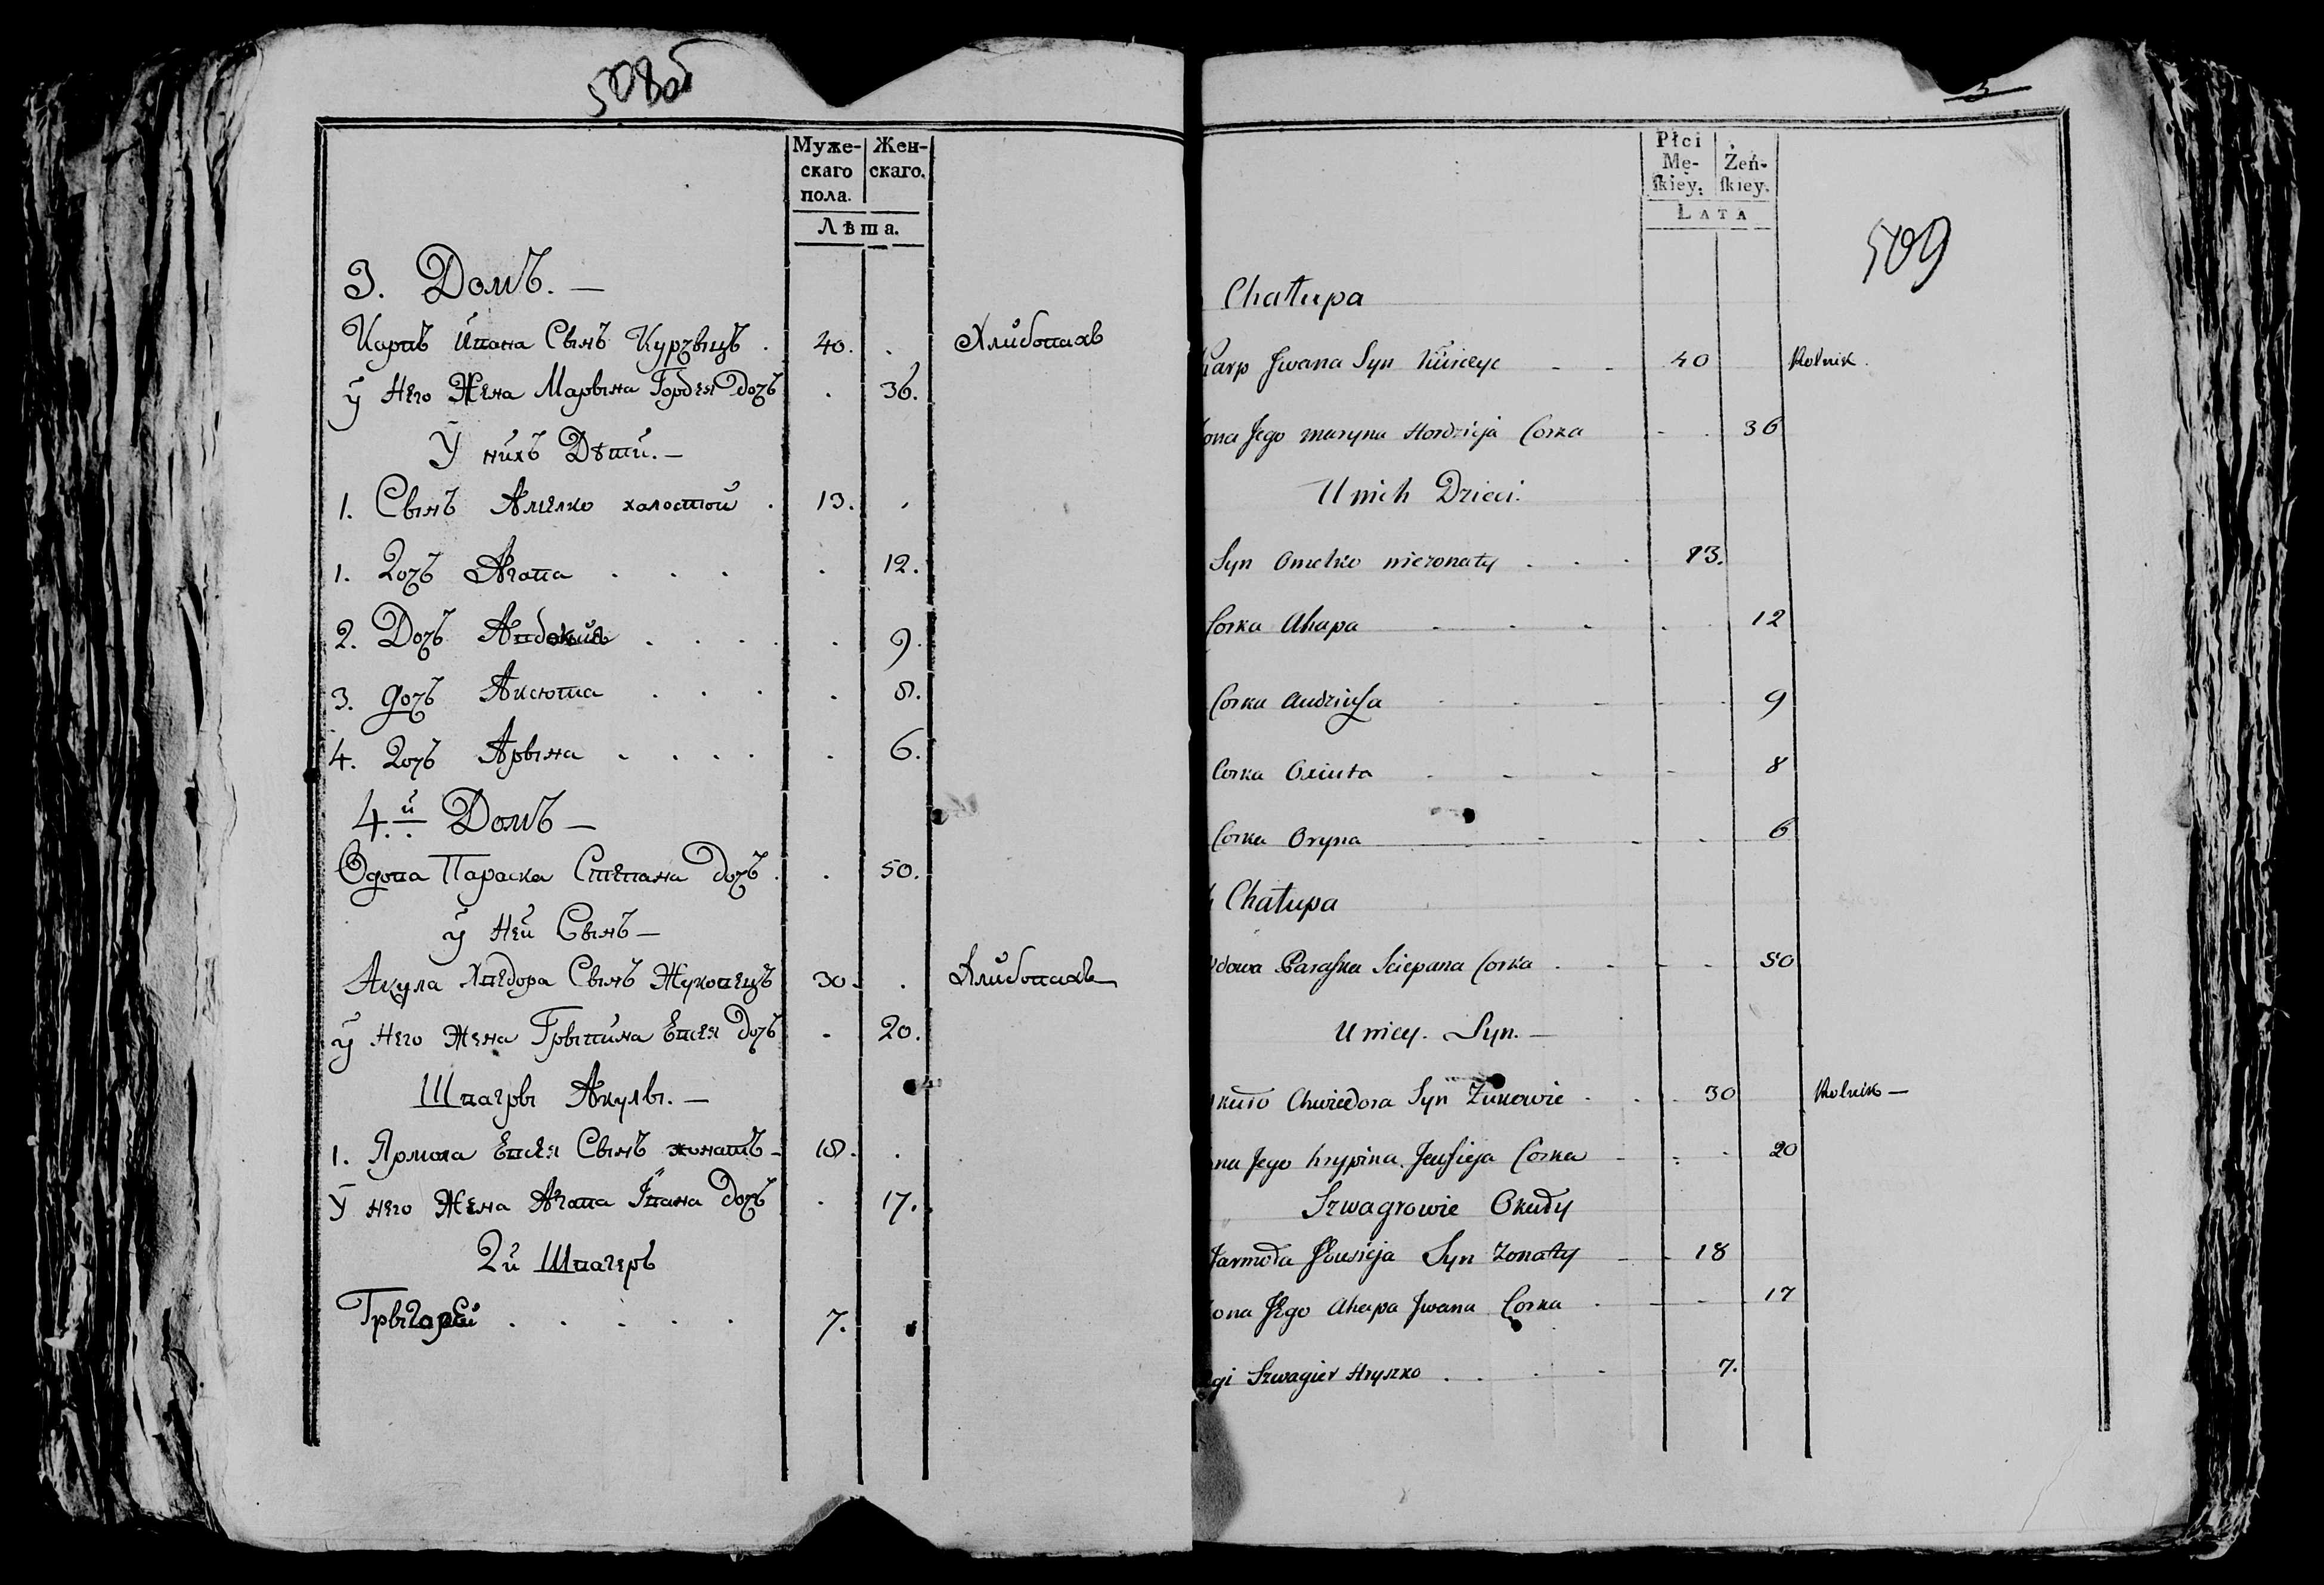 508об
Муже-
скаго
пола.
Жен-
скаго.
Лѣта.
3. Домъ. —
Карпъ Ивана Сынъ Курчвицъ . 40. . Хлибопахъ
у Него Жена Марвіна Гордея Дочъ . 36.
У нихъ Дѣти. —
1. Сынъ Амелко холостой . 13. .
1. Дочъ Агапа . . . . 12.
2. Дочъ Авдокия . . . . 9.
3. дочъ Аксюта . . . . 8.
4. Дочъ Арвіна . . . . 6.
4.й Домъ —
Одова Параска Степана Дочъ . . 50.
у Ней Сынъ —
Акула Хведора Сынъ Жуковецъ 30. . Хлибопахъ
у Него Жена Грвіпина Евсея Дочъ - 20.
Швагрві Акулві. —
1. Ярмола Евсея Сынъ жонатъ - 18. .
У него Жена Агапа Івана Дочъ . 17.
2й Швагеръ
Грвігорей . . . . . 7.
3
Płci
Mę-
ſkiey.
Żeń-
ſkiey.
LATA
509
Chałupa
Karp Jwana Syn - - 40 Rolnik.
ona Jego maryna Hordzieja Corka - . 36
U nich Dzieci.
Syn Omelko nieżonaty . . . 13.
Corka Ahapa - - - . . 12
Corka - - - - . 9
Corka Oxiuta - - - - 8
Corka Oryna - - . 6
4 Chałupa
dowa Paraſka Sciepana Corka . - - . 50
U niey. Syn. —
kuło Chwiedora Syn Żukowie - . . 30 Rolnik —
na Jego hrypina Jewſieja Corka - : . 20
Szwagrowie Okuły
Jarmoła Syn żonaty - - 18
ona Jego Ahapa Jwana Corka . - - 17
gi Szwagier Hryszko . . . - 7.